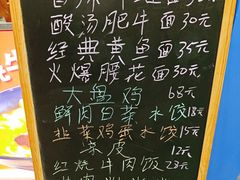 面30元
酸汤肥牛面30元
经典黄鱼面35元
火爆腰花面30元
大盘鸡 68元
鲜肉白菜水饺18元
韭菜鸡蛋水饺15元
12元
红烧牛肉饭23元